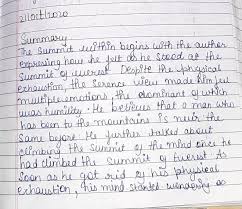 21/Oct/2020
Summary
The Summit within begins with the author
expressing how he felt as he stood at the
Summit of everest. Despite the physical
exhaustion, the serence view made him feel
multiple emotions, the dominant of which
was humility. He believes that a man who
has been to the mountains is never the
same before. He further talked about
climbing the Summit of the mind once he
had climbed the Summit of Everest. As
soon as he got rid of his physical
exhaustion, his mind started wondering as